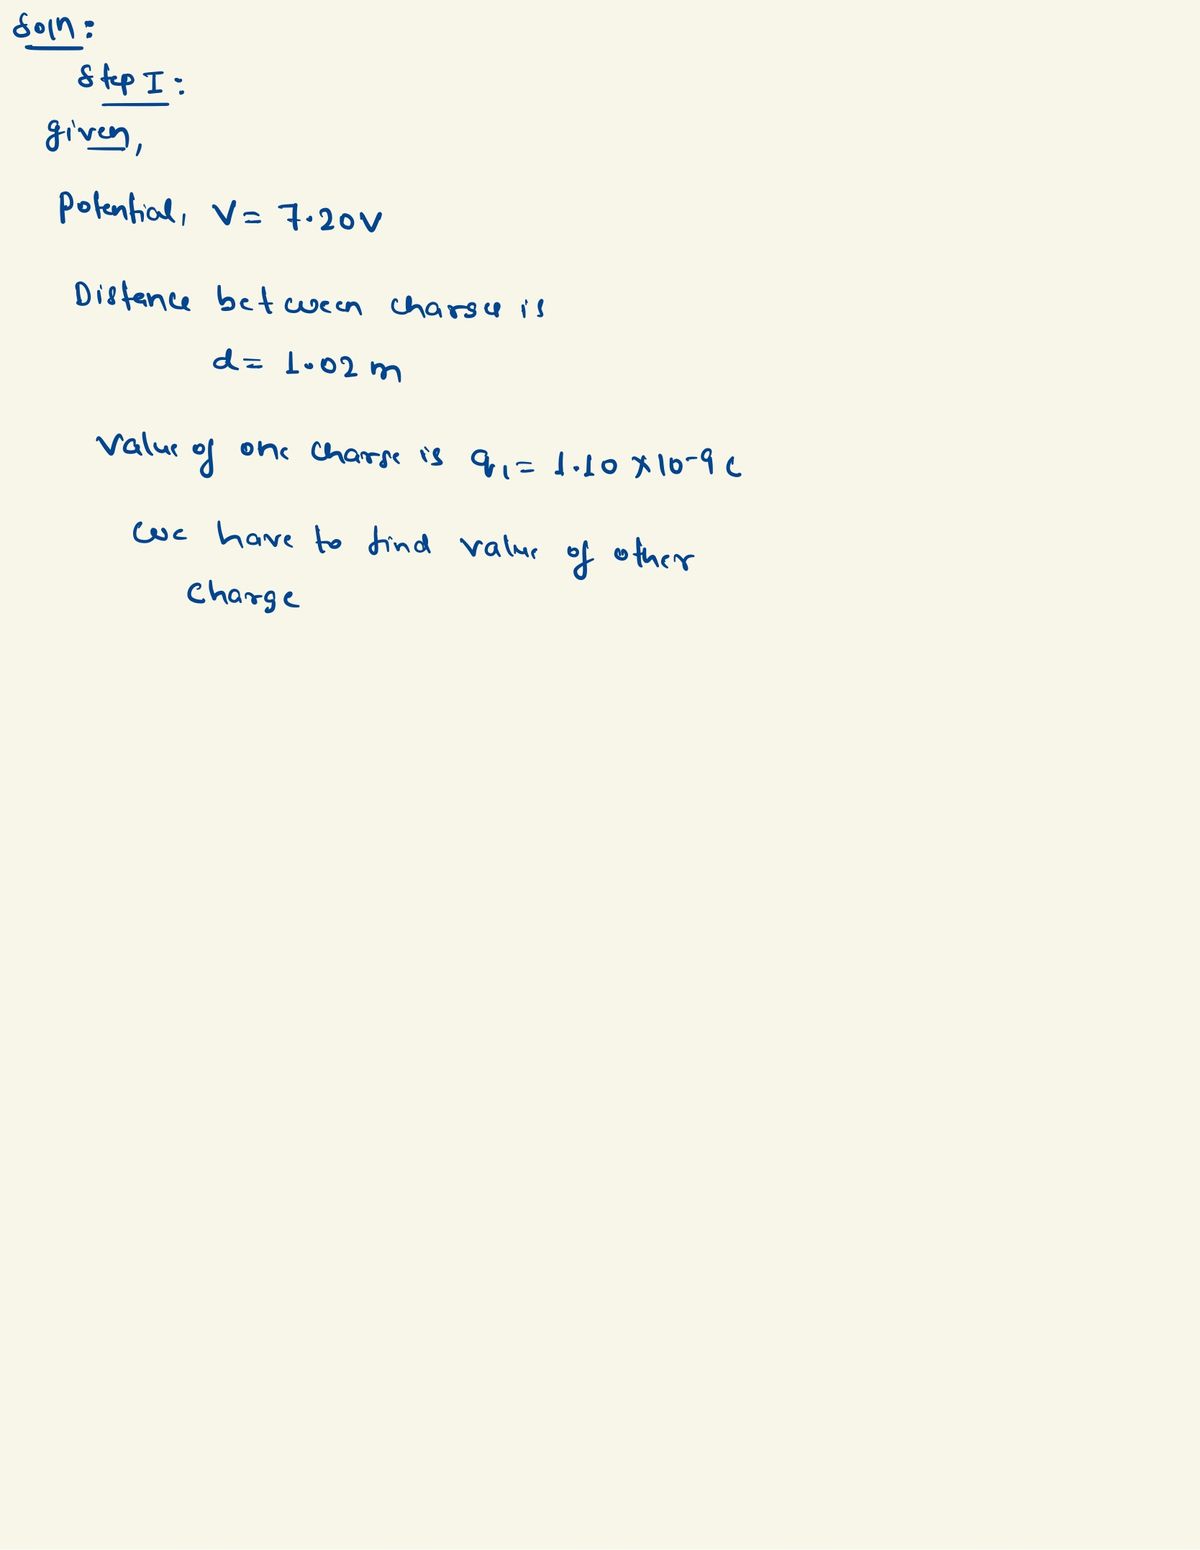 Soln:
Step I:
given,
Potential, V= 7.20V
Distance between charge is
d= 1.02 m
Value of one charge is q₁= 1.10 ×10-9 C
we have to find value of other
charge